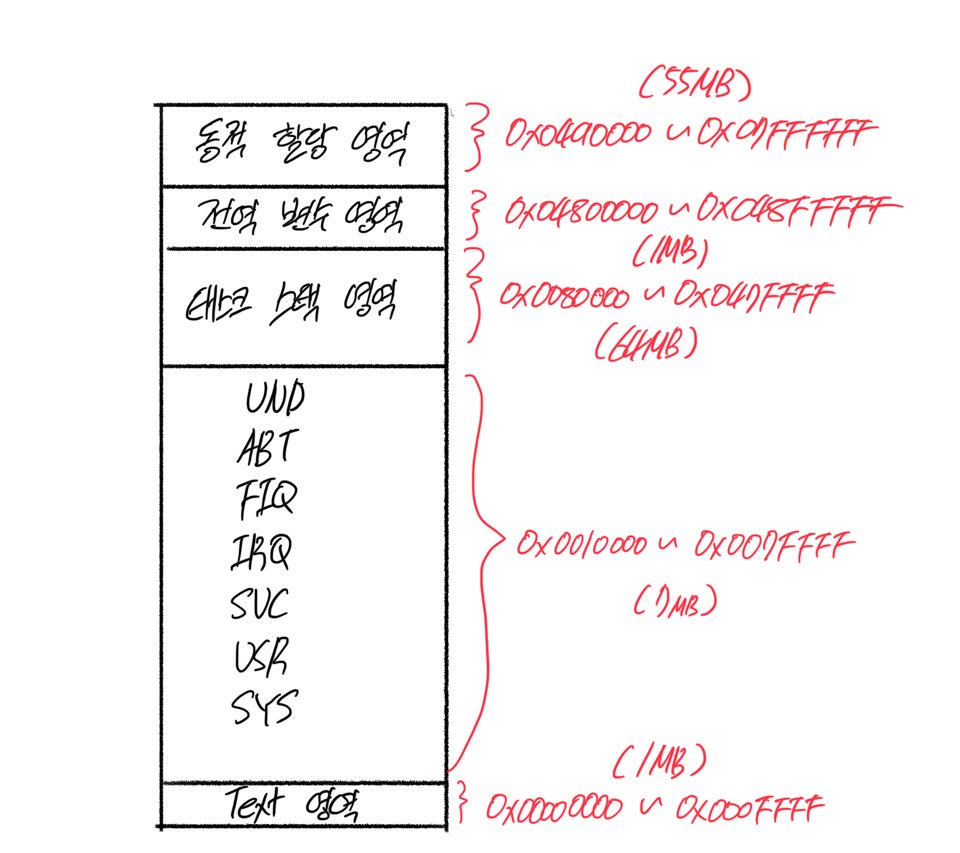 (55MB)
동적 할당 영역
0x0490000 ~ 0x07FFFFFF
전역 변수 영역
0x04800000 ~ 0x048FFFFF
(1MB)
태스크 스택 영역
0x0080000 ~ 0x047FFFF
(64MB)
UND
ABT
FIQ
IRQ
SVC
USR
SYS
0x0010000 ~ 0x007FFFF
(7MB)
(1MB)
Text 영역
0x00000000 ~ 0x000FFFF